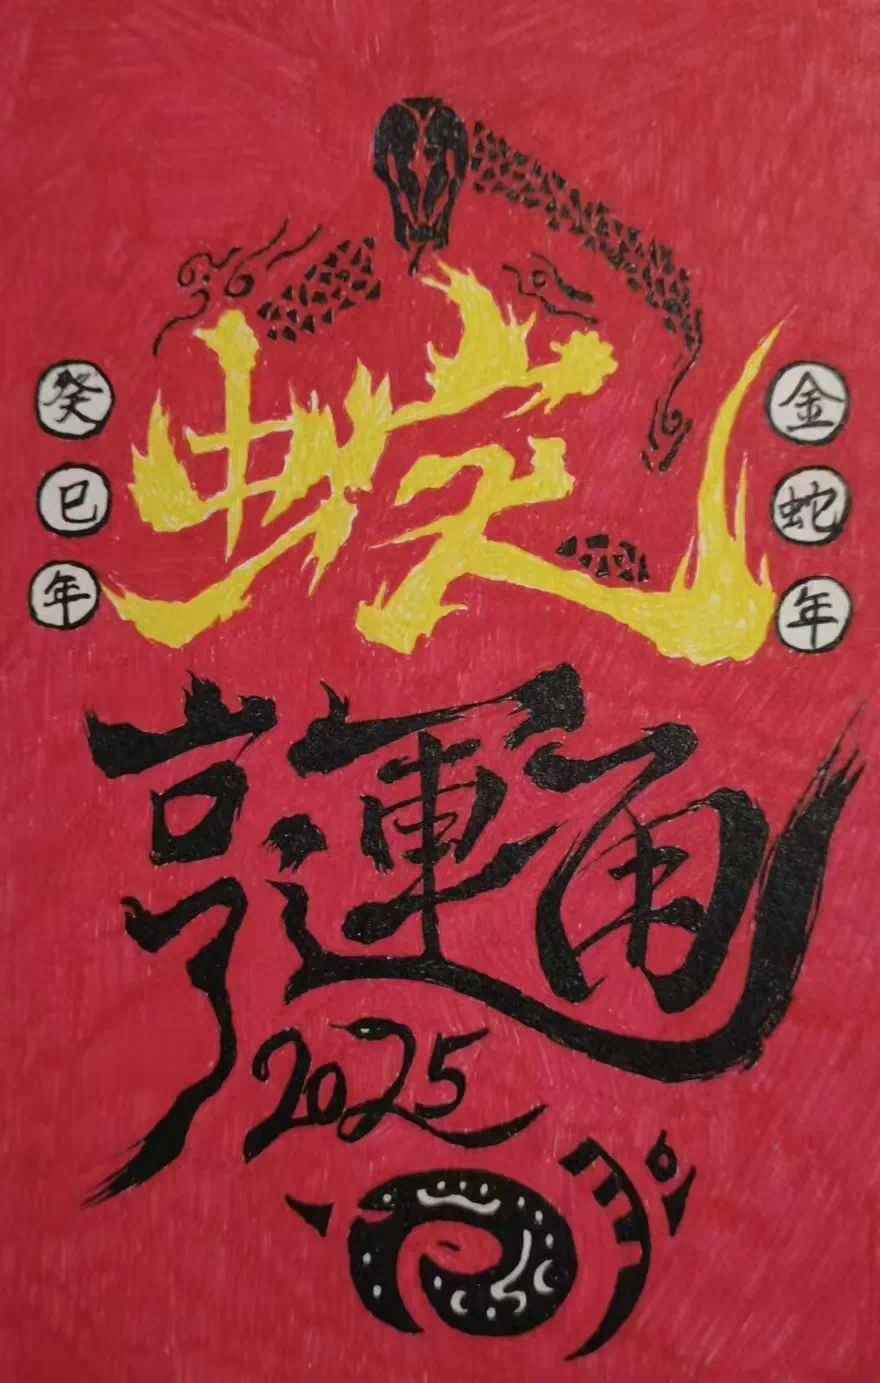 癸巳年
金蛇年
蛇
亨運通
2025